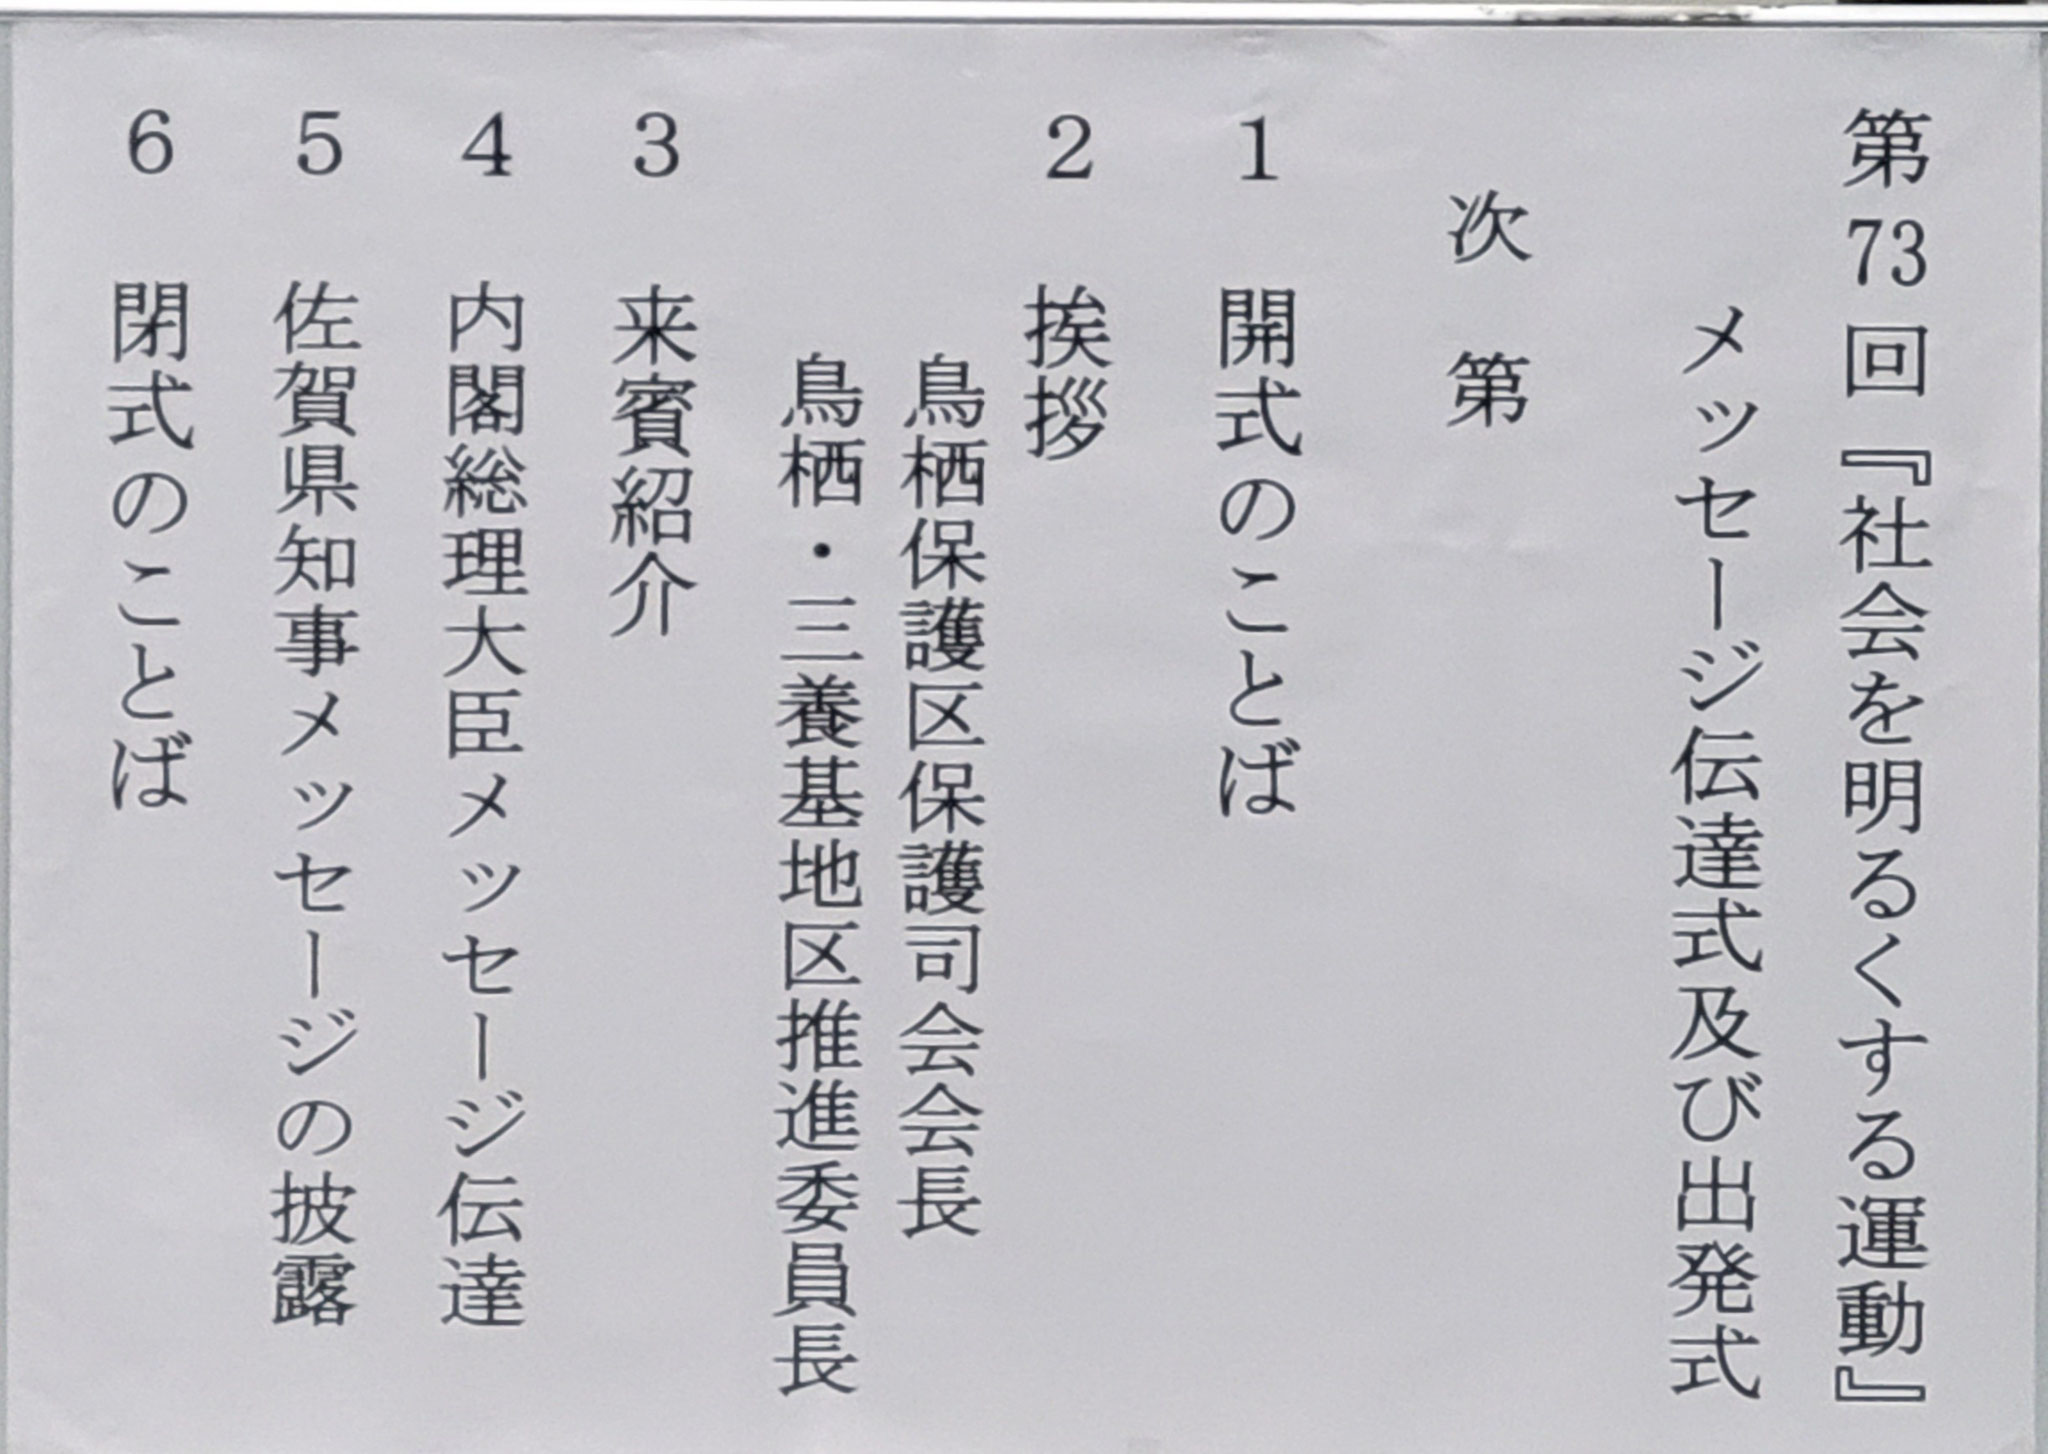 第73回『社会を明るくする運動』
メッセージ伝達式及び出発式
次 第
1 開式のことば
2 挨拶
鳥栖保護区保護司会会長
鳥栖・三養基地区推進委員長
3 来賓紹介
4 内閣総理大臣メッセージ伝達
5 佐賀県知事メッセージの披露
6 閉式のことば